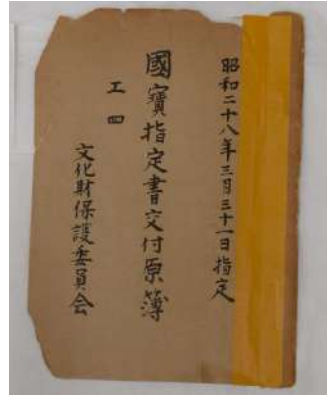 昭和二十八年三月三十一日指定
國寶指定書交付原簿
工四
文化財保護委員会